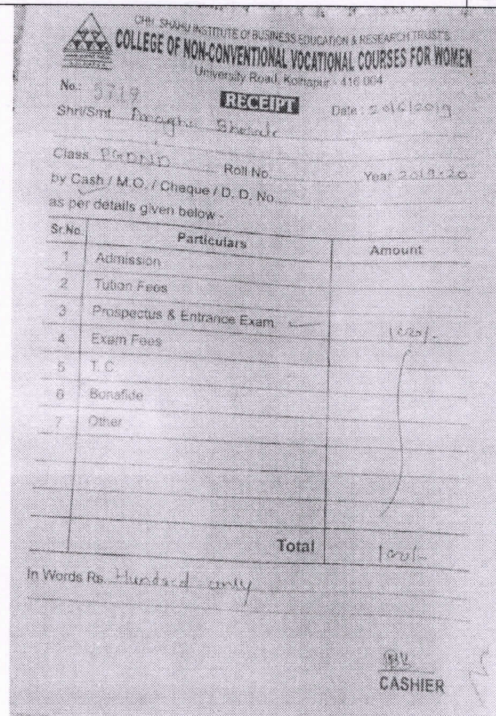 CHH. SHAHU INSTITUTE OF BUSINESS EDUCATION & RESEARCH TRUST'S
COLLEGE OF NON-CONVENTIONAL VOCATIONAL COURSES FOR WOMEN
University Road, Kolhapur - 416 004
No.: 5719 RECEIPT Date:
Shri/Smt.
Class Roll No. Year 2019-20
by Cash / M.O. / Cheque / D. D. No.
as per details given below -
Sr.No. Particulars Amount
1 Admission
2 Tution Fees
3 Prospectus & Entrance Exam 100/-
4 Exam Fees
5 T. C
6 Bonafide
7 Other
Total 100/-
In Words Rs. Hundred only
CASHIER